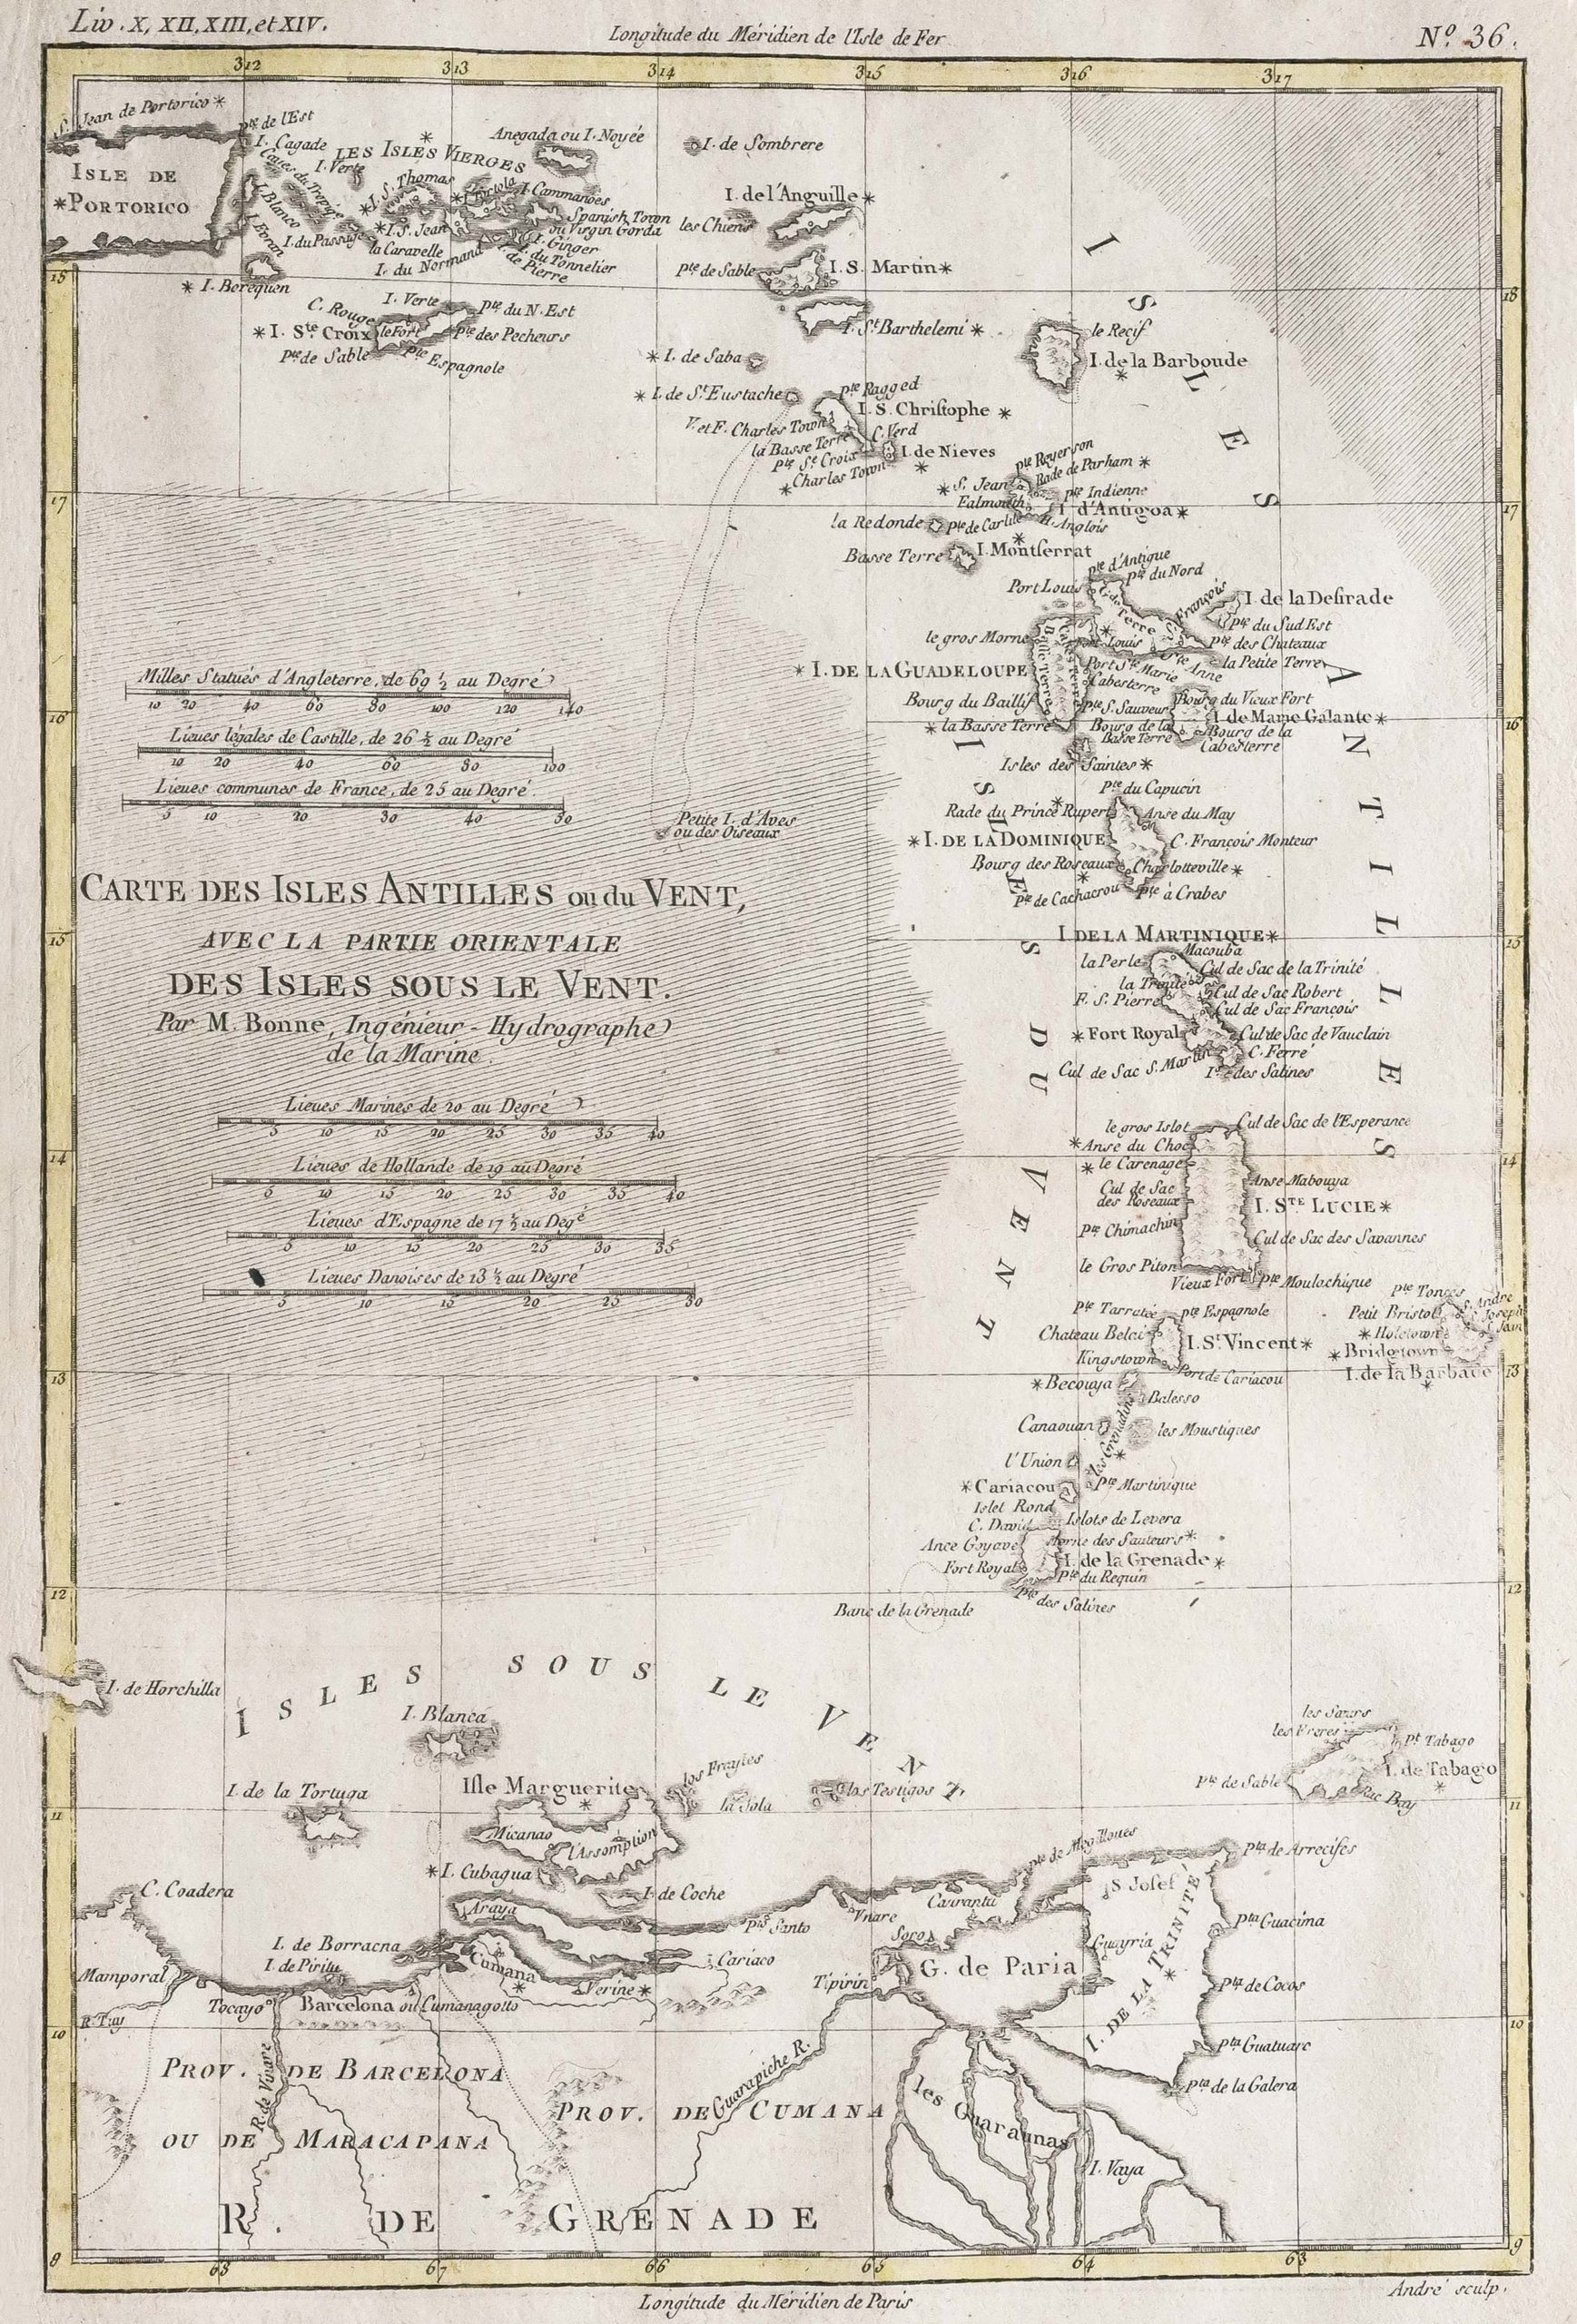 Liv. X, XII, XIII, et XIV.
Longitude du Méridien de l'Isle de Fer
Nº. 36.
312 313 314 315 316 317
S. Jean de Portorico *
Pte de l'Est
I. Cagade
LES ISLES VIERGES
Anegada ou I. Noyée
I. de Sombrere
I. Verte
ISLE DE
* PORTORICO
I. Blanco
* I. S. Thomas
* I. Tortola
I. Cammanoes
Spanish Town
ou Virgin Gorda
I. du Passage
* I. S. Jean
I. Ginger
la Caravelle
I. du Tonnelier
I. du Normand
de Pierre
I. de l'Anguille *
les Chiens
Pte de Sable
I. S. Martin *
18
18
* I. Borequen
C. Rouge
I. Verte
Pte du N. Est
* I. Ste Croix
le Fort
Pte des Pecheurs
Pte de Sable
Pte Espagnole
I. St Barthelemi *
* I. de Saba
le Recif
I. de la Barboude
*
* I. de St Eustache
Pte Ragged
I. S. Christophe *
V. et F. Charles Town
C. Verd
la Basse Terre
I. de Nieves
Pte Ste Croix
* Charles Town
17
17
Pte Royerson
Rade de Parham *
* S. Jean
Pte Indienne
Falmouth
I. d'Antigoa *
la Redonde
Pte de Carlile
H. Anglois
Basse Terre
I. Montserrat
Pte d'Antique
Pte du Nord
Port Louis
I. de la Desirade
le gros Morne
S. François
Pte du Sud Est
Pte des Chateaux
Fort Louis
* I. DE LA GUADELOUPE
Port Ste Marie
Ste Anne
la Petite Terre
Cabesterre
Bourg du Baillif
Pte S. Sauveur
Bourg du Vieux Fort
* la Basse Terre
I. de Marie Galante *
Bourg de la
Basse Terre
Bourg de la
Cabesterre
16
16
Isles des Saintes *
Pte du Capucin
Rade du Prince Rupert
Anse du May
* I. DE LA DOMINIQUE
C. François Monteur
Bourg des Roseaux
Charlotteville *
Pte de Cachacrou
Pte à Crabes
ISLES ANTILLES
ISLES DU VENT
Milles Statués d'Angleterre, de 69 ½ au Degré
10 20 40 60 80 100 120 140
Lieues légales de Castille, de 26 ½ au Degré
10 20 40 60 80 100
Lieues communes de France, de 25 au Degré.
5 10 20 30 40 50
Petite I. d'Aves
ou des Oiseaux
CARTE DES ISLES ANTILLES ou du VENT,
AVEC LA PARTIE ORIENTALE
DES ISLES SOUS LE VENT.
Par M. Bonne, Ingénieur-Hydrographe
de la Marine.
Lieues Marines de 20 au Degré
5 10 15 20 25 30 35 40
Lieues de Hollande de 19 au Degré
5 10 15 20 25 30 35 40
Lieues d'Espagne de 17 ½ au Degé
5 10 15 20 25 30 35
Lieues Danoises de 13 ½ au Degré
5 10 15 20 25 30
15
15
I DE LA MARTINIQUE *
Macouba
la Perle
Cul de Sac de la Trinité
la Trinité
Cul de Sac Robert
F. S. Pierre
Cul de Sac François
* Fort Royal
Cul de Sac de Vauclain
C. Ferré
Cul de Sac S. Martin
Is des Salines
le gros Islot
Cul de Sac de l'Esperance
* Anse du Choc
14
14
* le Carenage
Cul de Sac
des Roseaux
Anse Mabouya
I. STE LUCIE *
Pte Chimachin
Cul de Sac des Savannes
le Gros Piton
Vieux Fort
Pte Moulachique
Pte Tarratée
Pte Espagnole
Chateau Belai
I. St Vincent *
Kingstown
Port de Cariacou
Petit Bristol
S. André
S. Joseph
S. Jean
* Holetown
* Bridgtown
I. de la Barbade
*
13
13
* Becouya
Balesso
Canaouan
les Moustiques
les Grenadins
l'Union
* Cariacou
Pte Martinique
Islet Rond
C. David
Islots de Levera
Ance Goyave
Morne des Sauteurs *
Fort Royal
I. de la Grenade *
Pte du Requin
Pte des Salines
Banc de la Grenade
12
12
ISLES SOUS LE VENT
I. de Horchilla
I. Blanca
les Sœurs
les Freres
Pt Tabago
I. de Tabago
*
Pte de Sable
I. de la Tortuga
Isle Marguerite
*
los Frayles
la Sola
los Testigos
11
11
Micanao
l'Assomption
* I. Cubagua
I. de Coche
Pta de Arrecifes
C. Coadera
S. Josef
Araya
Pta Santo
Vnare
Pta Guacima
I. de Borracna
Soros
Guayria
I. de Piritu
Cumana
*
Cariaco
G. de Paria
Mamporal
Verine *
Tipirin
Pta de Cocos
I. DE LA TRINITÉ
*
Tocayo
Barcelona ou Cumanagotto
R. Tuy
10
10
Pta Guatuarc
Pta de la Galera
PROV. DE BARCELONA
OU DE MARACAPANA
R. de Vnare
Guarapiche R.
PROV. DE CUMANA
les Guaraunas
I. Vaya
R. DE GRENADE
9
9
68 67 66 65 64 63
Longitude du Méridien de Paris
André sculp.